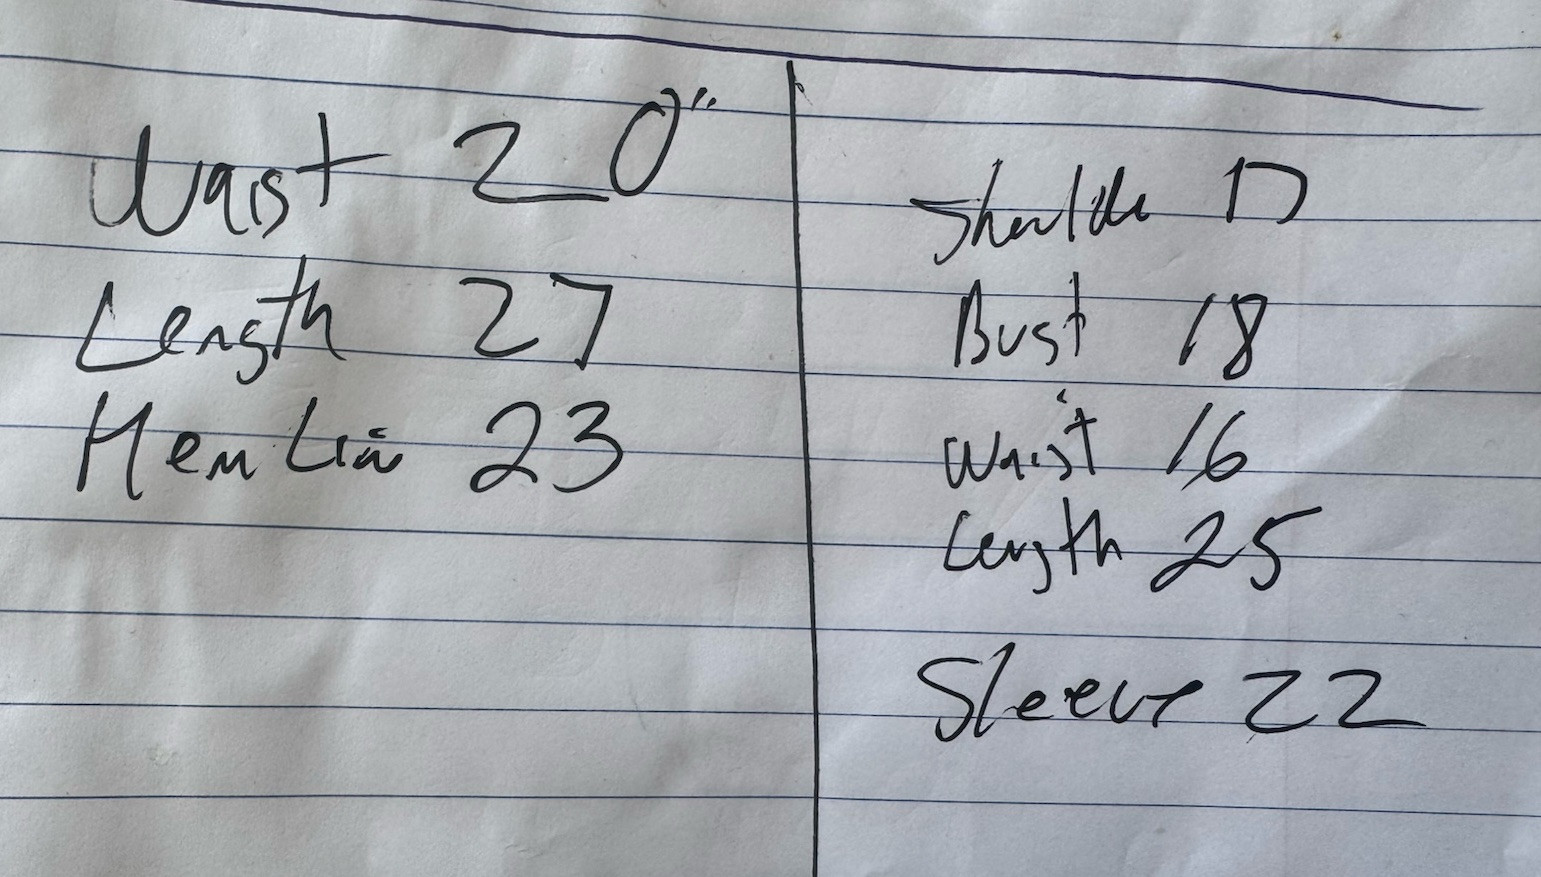 Waist 20"
Length 27
Hem Line 23
Shoulder 17
Bust 18
Waist 16
Length 25
Sleeve 22